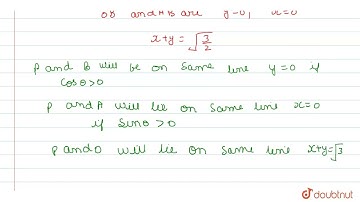 and AB are y=0, x=0
x+y = √3/2
P and B will be on same line y=0 if
cosθ>0
P and A will be on same line x=0
if sinθ>0
P and O will be on same line x+y=√3
doubtnut